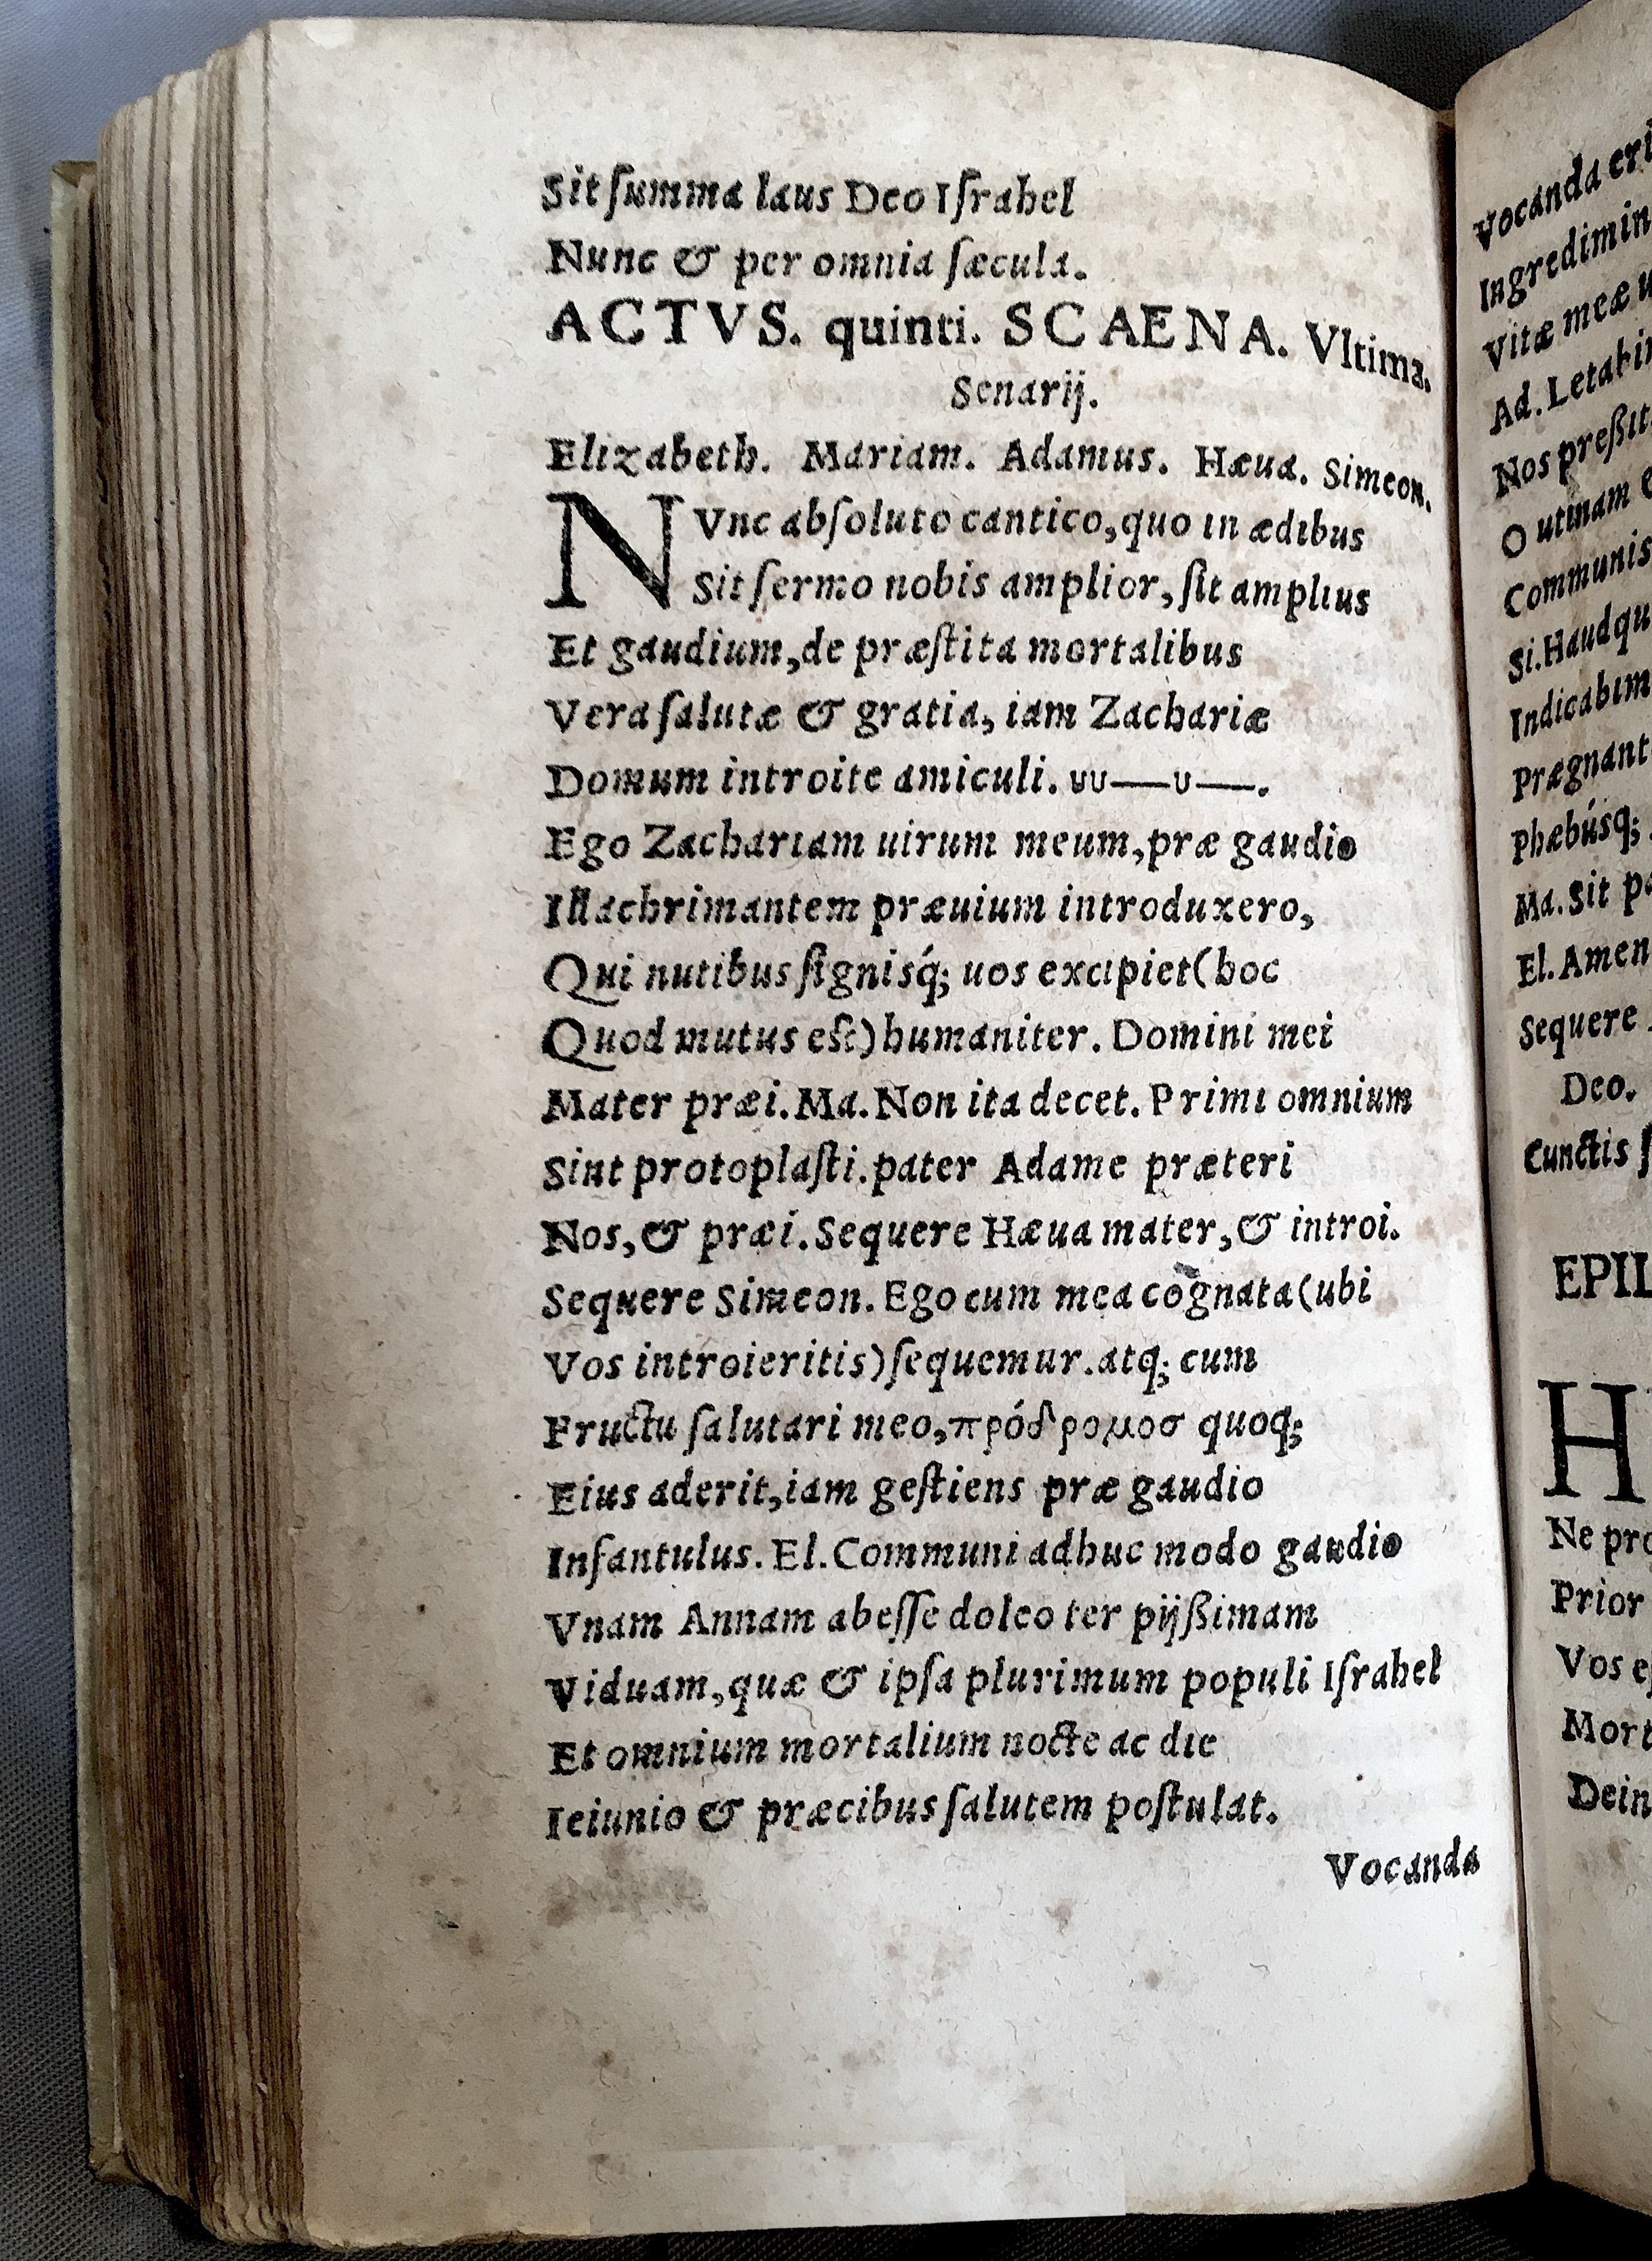 Sit ſumma laus Deo Iſrahel
Nunc & per omnia ſæcula.
ACTVS. quinti. SCAENA. Vltima.
Senarij.
Elizabeth. Mariam. Adamus. Hæua. Simeon.
NVnc abſoluto cantico, quo in ædibus
Sit ſermo nobis amplior, ſit amplius
Et gaudium, de præſtita mortalibus
Vera ſalutæ & gratia, iam Zachariæ
Domum introite amiculi. uu—u—.
Ego Zachariam uirum meum, præ gaudio
Illachrimantem præuium introduxero,
Qui nutibus ſignisq́; uos excipiet (hoc
Quod mutus eſt) humaniter. Domini mei
Mater præi. Ma. Non ita decet. Primi omnium
Sint protoplaſti. pater Adame præteri
Nos, & præi. Sequere Hæua mater, & introi.
Sequere Simeon. Ego cum mea cognata (ubi
Vos introieritis) ſequemur. atq; cum
Fructu ſalutari meo, πρόδρομοσ quoq;
Eius aderit, iam geſtiens præ gaudio
Infantulus. El. Communi adhuc modo gaudio
Vnam Annam abeſſe doleo ter pijßimam
Viduam, quæ & ipſa plurimum populi Iſrahel
Et omnium mortalium nocte ac die
Ieiunio & præcibus ſalutem poſtulat.
Vocanda
Vocanda
Ingredimin
Vitæ meæ
Ad. Letabi
Nos preßit
O utinam
Communis
Si. Haudqu
Indicabim
Prægnant
Phæbúsq;
Ma. Sit
El. Amen
Sequere
Deo.
Cunctis
EPIL
H
Ne
Prior
Vos
Mort
Dein